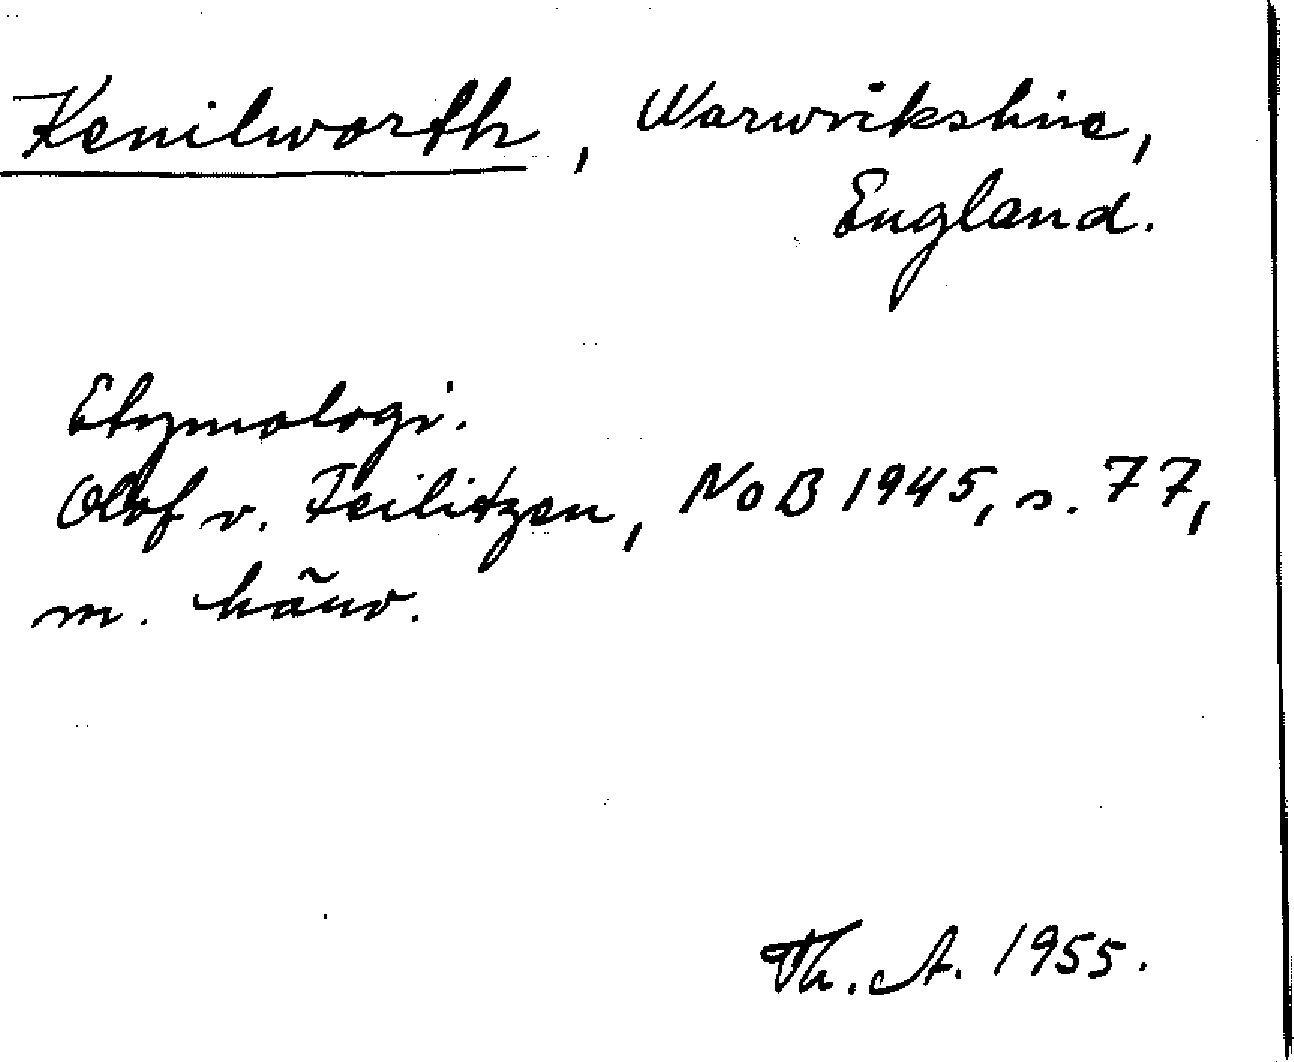 Kenilworth, Warwrikshire,
England.
Etymologi.
Olof v. Feilitzen, NoB 1945, s. 77,
m. hänv.
Th. A. 1955.